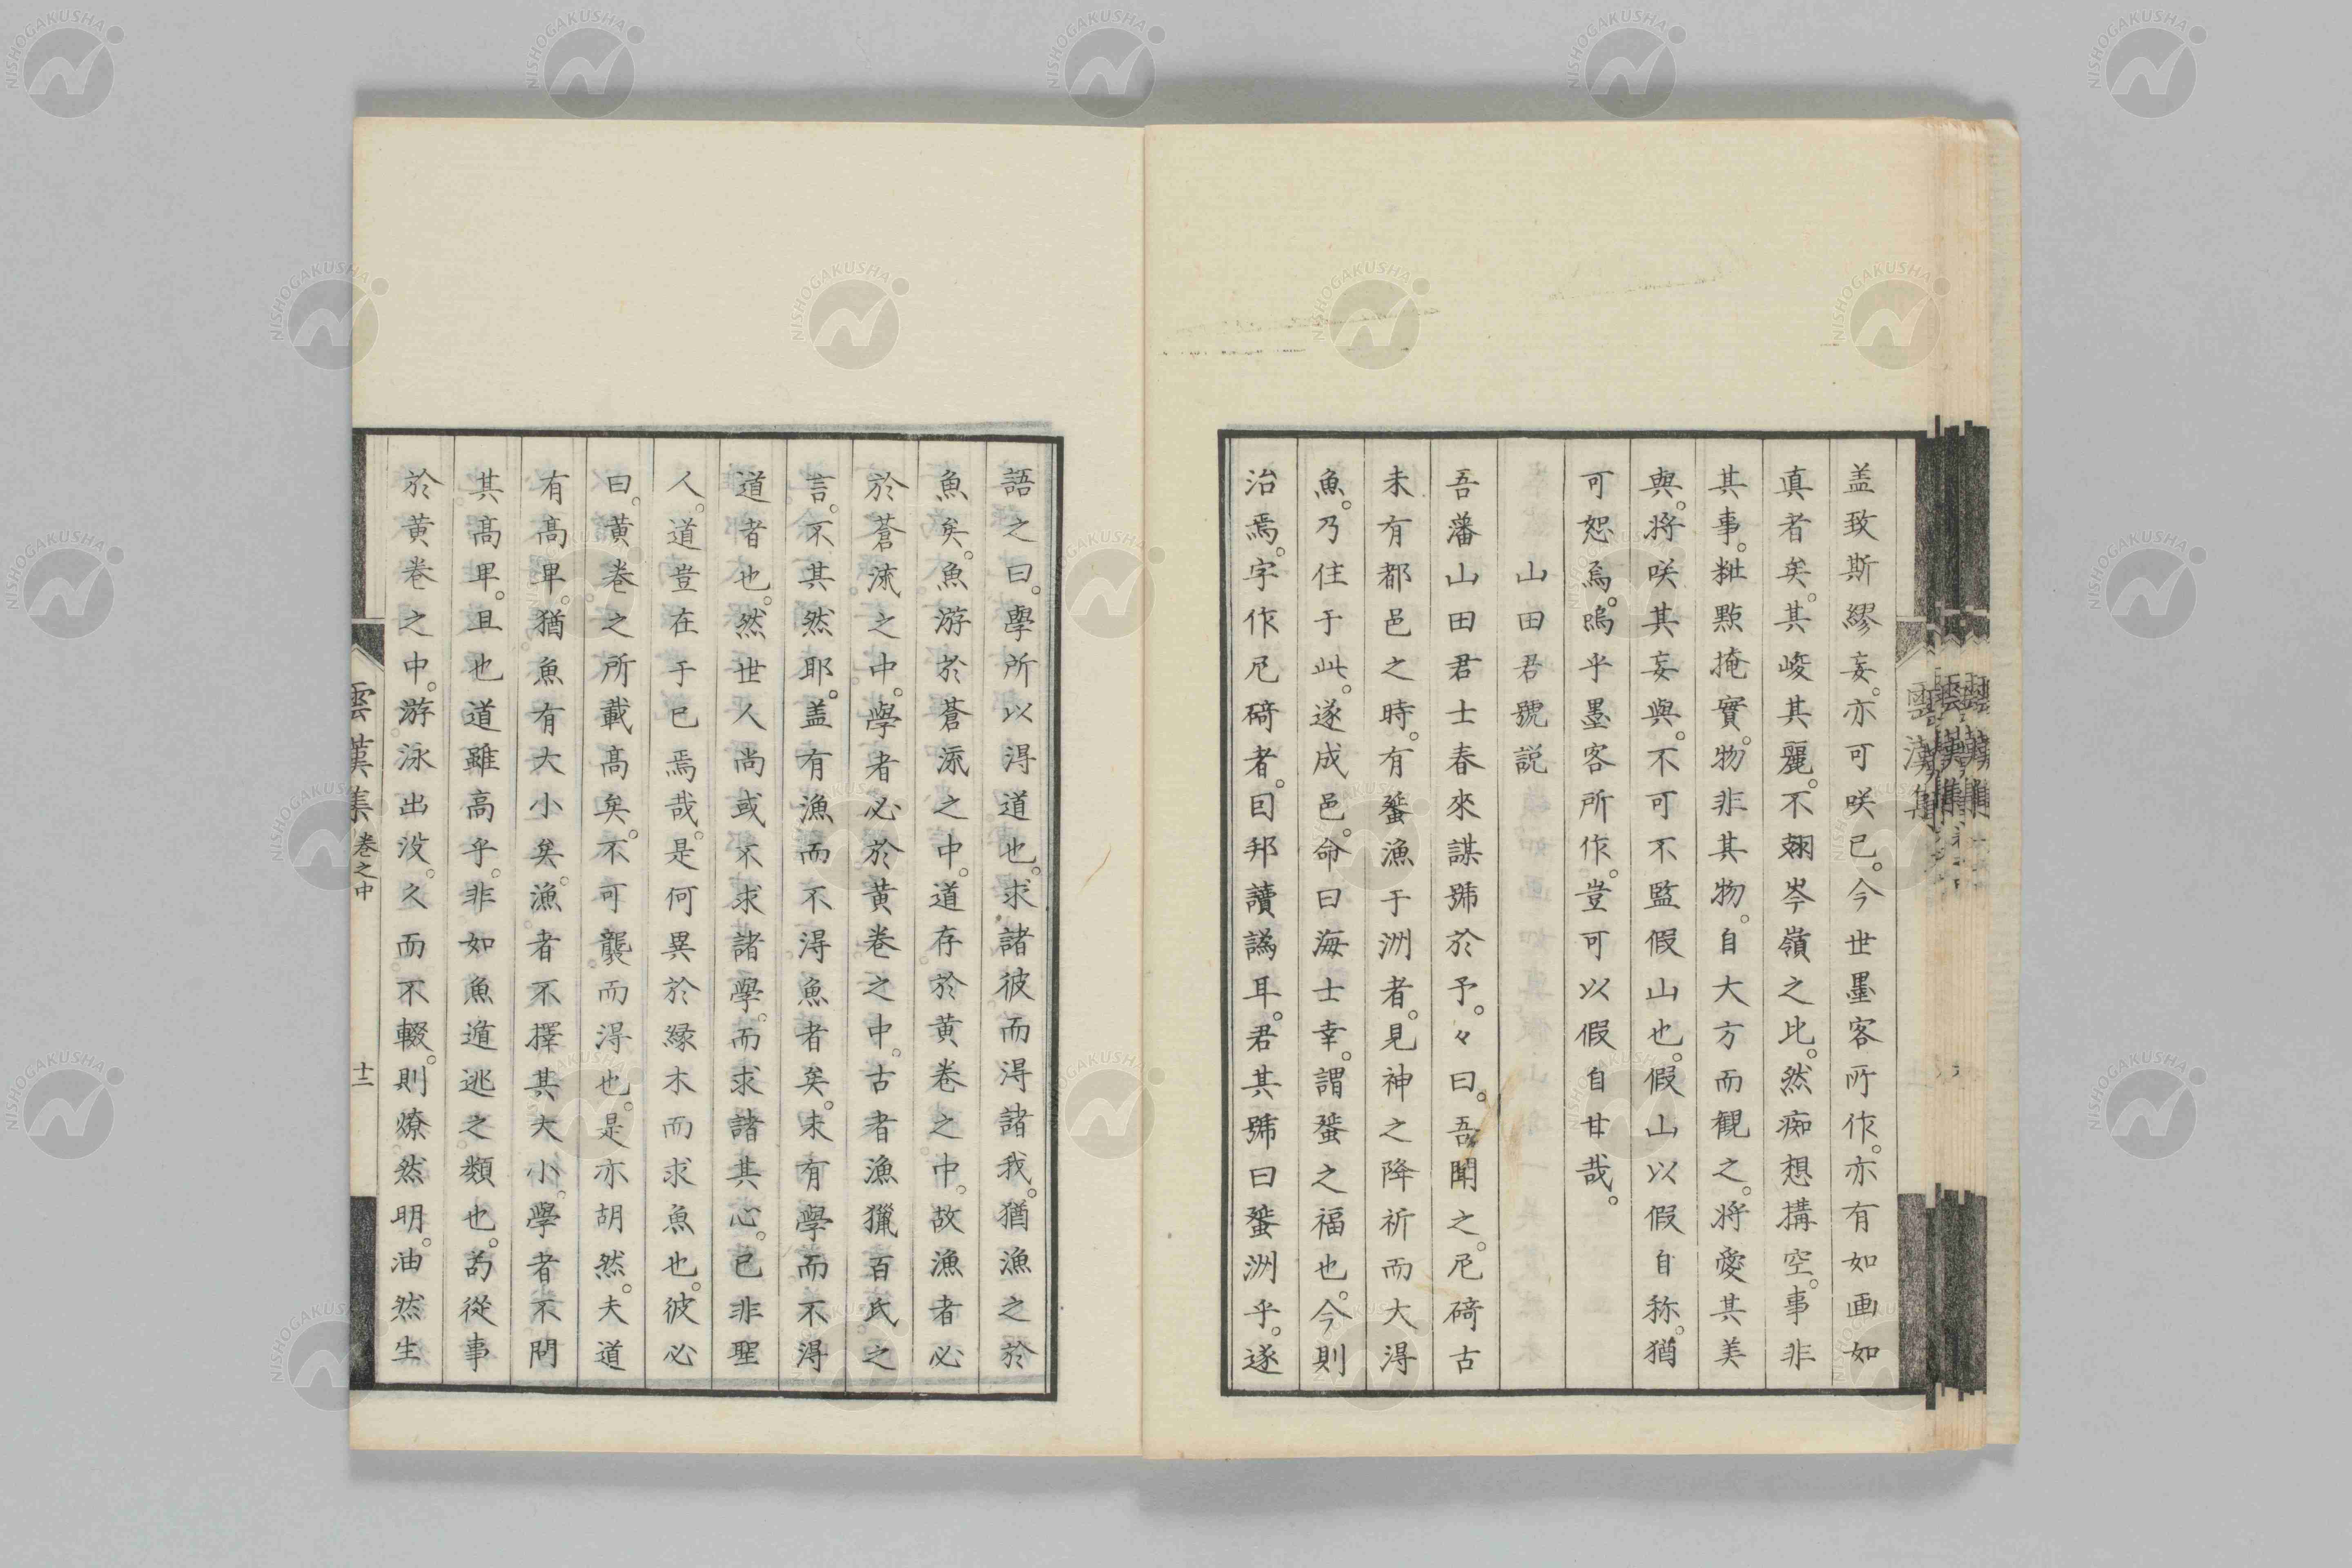 盖致斯繆妄。亦可咲已。今世墨客所作。亦有如画如
真者矣。其峻其麗。不翅岑嶺之比。然痴想搆空。事非
其事。粃㸃掩實。物非其物。自大方而観之。将愛其美
與。将咲其妄與。不可不監假山也。假山以假自称。猶
可恕焉。嗚乎墨客所作。豈可以假自甘哉。
山田君號説
吾藩山田君士春來謀號於予。々曰。吾聞之。尼碕古
未有都邑之時。有蜑漁于洲者。見神之降祈而大淂
魚。乃住于此。遂成邑。命曰海士幸。謂蜑之福也。今則
治焉。字作尼碕者。囙邦讀譌耳。君其號曰蜑洲乎。遂
語之曰。學所以淂道也。求諸彼而淂諸我。猶漁之於
魚矣。魚游於蒼流之中。道存於黄卷之中。故漁者必
於蒼流之中。學者必於黄卷之中。古者漁獵百氏之
言。不其然耶。盖有漁而不淂魚者矣。未有學而不淂
道者也。然世人尚或不求諸學。而求諸其心。已非聖
人。道豈在于已焉哉。是何異於縁木而求魚也。彼必
曰。黄卷之所載高矣。不可襲而淂也。是亦胡然。夫道
有高卑。猶魚有大小矣。漁者不擇其大小。學者不問
其高卑。且也道雖高乎。非如魚遁逃之類也。苟從事
於黄卷之中。游泳出没。久而不輟。則燎然明。油然生
雲漢集 卷之中 十二
NISHOGAKUSHA